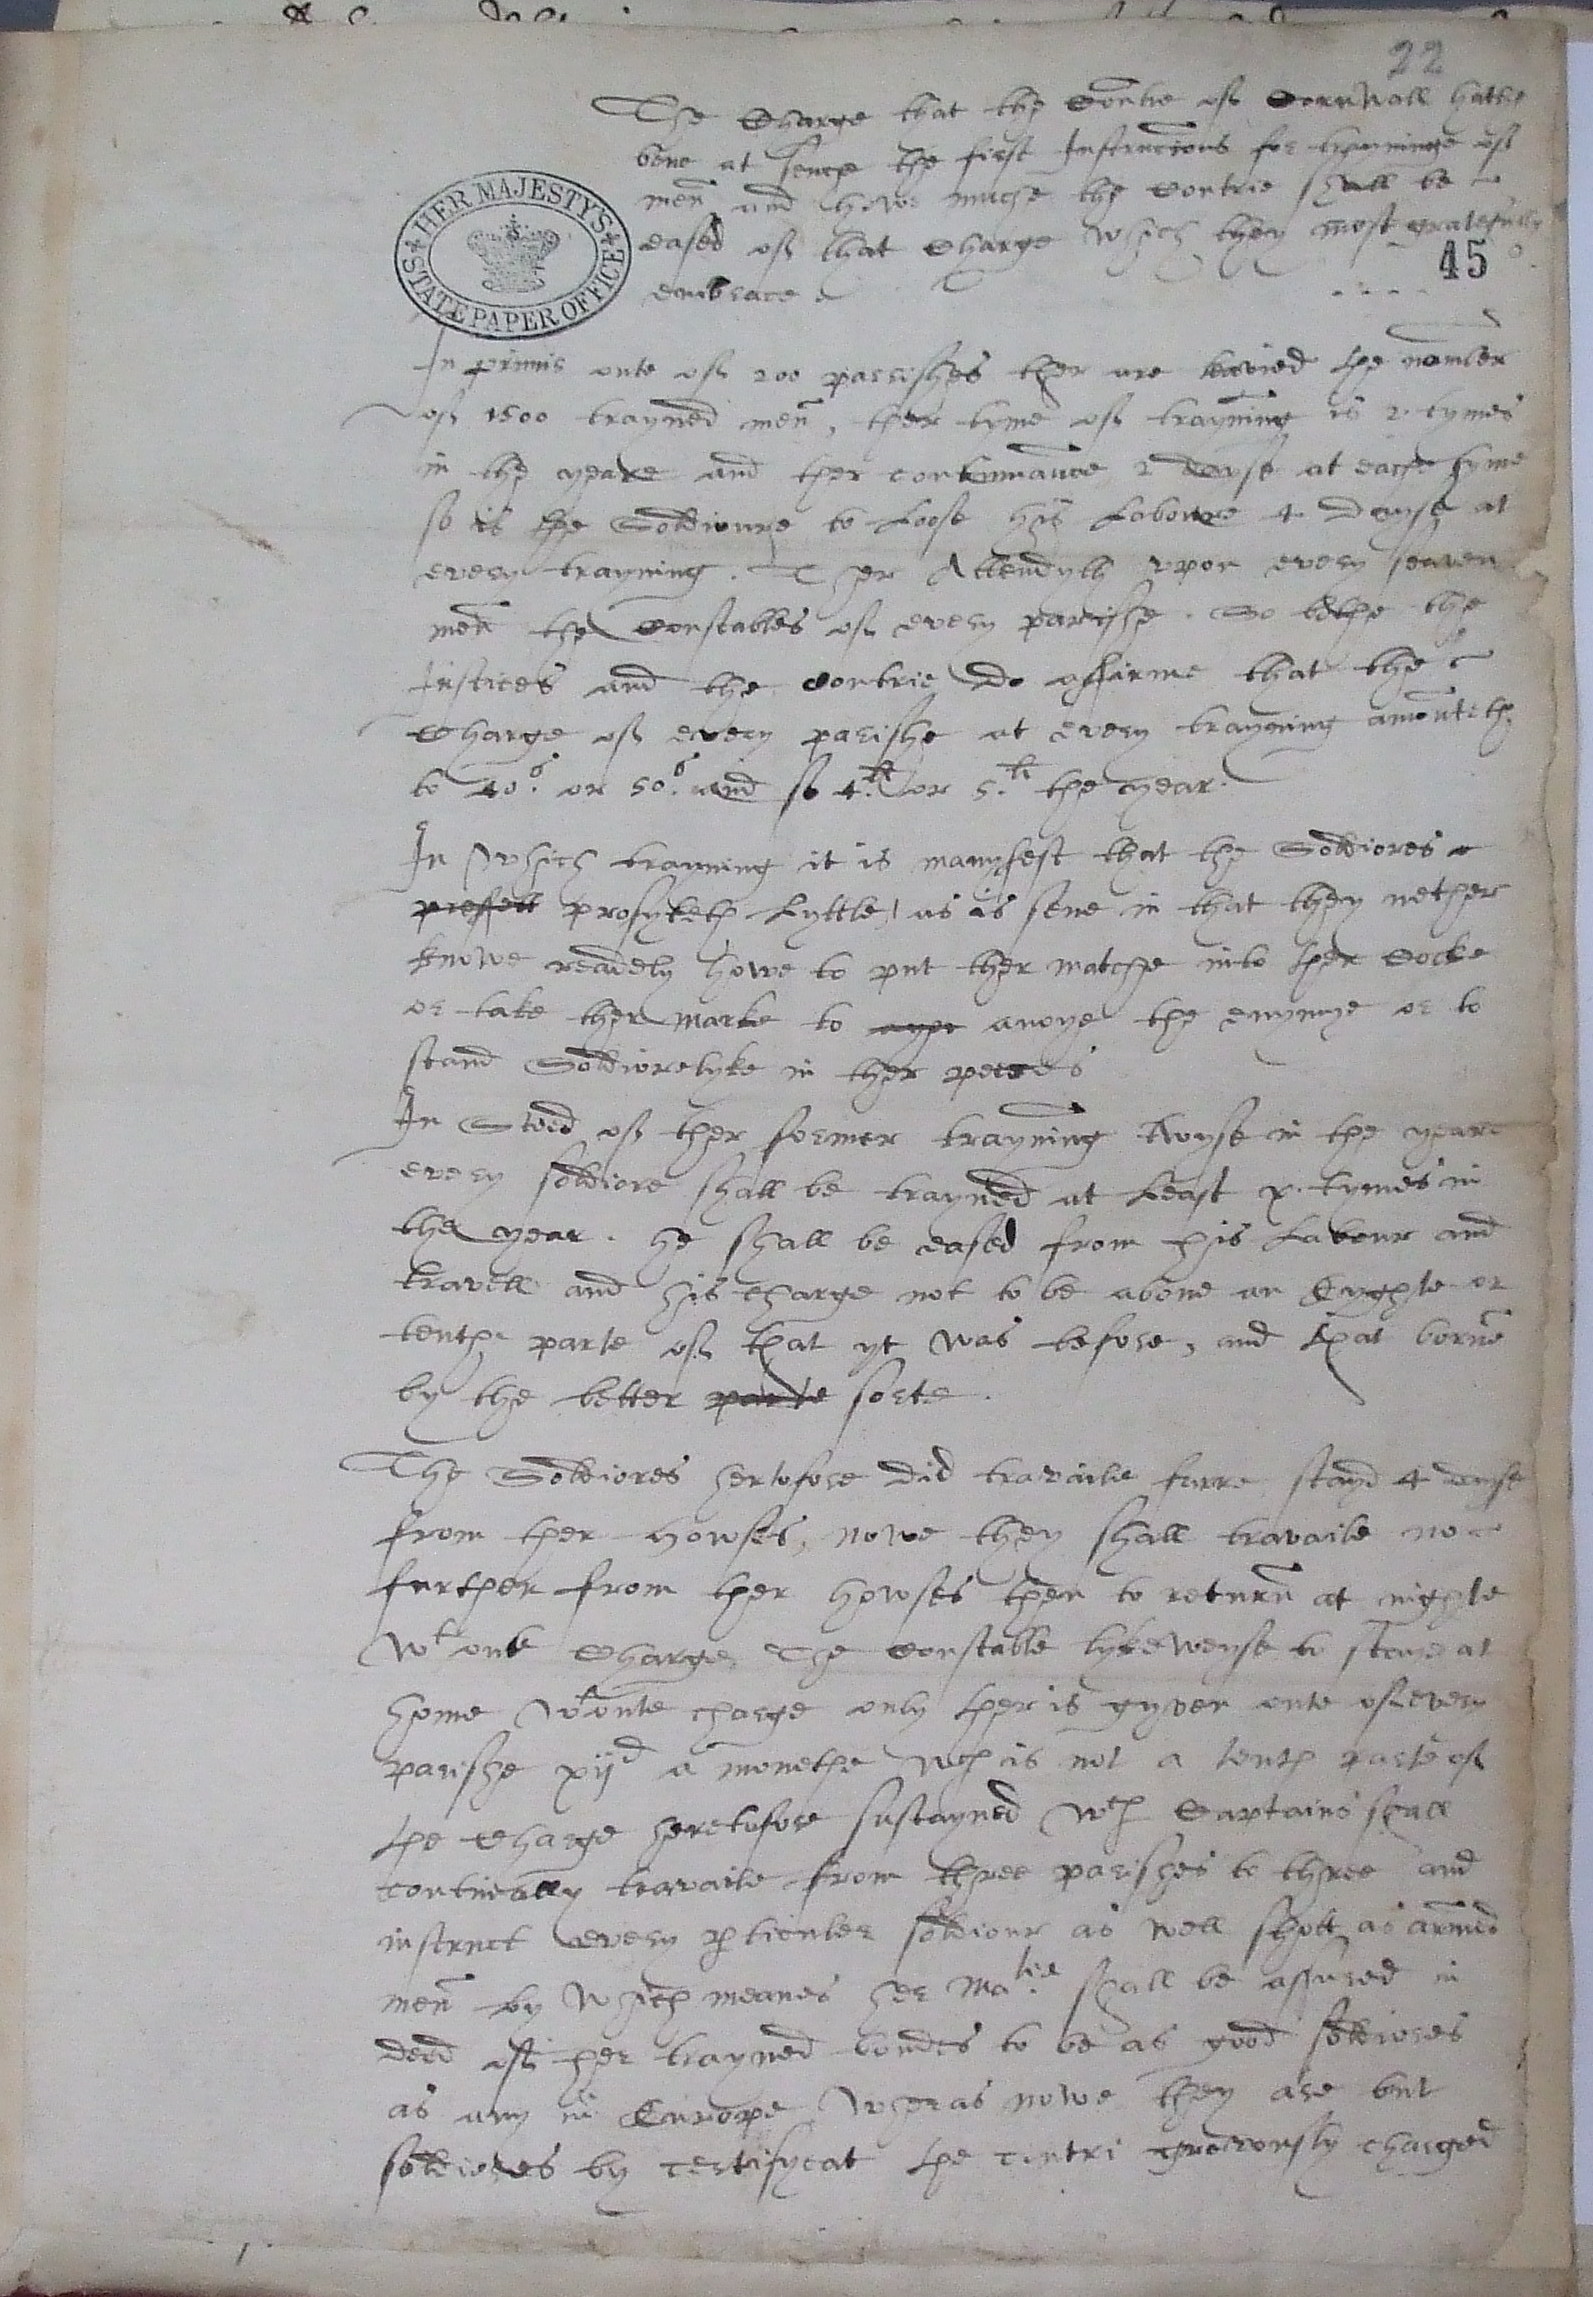 22
The Charge that the Contrie of Cornwall hathe
bene at sence the first Instructions for trayninge of
men and howe muche the Contrie shall be
eased of that Charge which they most gratefully
embrace
45
HER MAJESTY'S STATE PAPER OFFICE
In primis oute of 200 parrishes ther are levied the number
of 1500 trayned men, ther tyme of trayning is 2. tymes
in the yeare and ther continuance 2 dayse at eache tyme
so is the Soldioure to Loose his Laboure 4 dayse at
every trayning. Ther Attendyth upon every seaven
men the Constables of every parishe. So bothe the
Justices and the Contrie do affirme that the
Charge of every parishe at every trayning amounteth
to 40s. or 50s. and so 4.li or 5.li the year.
In Which trayning it is manyfest that the Soldiores
preffett profyteth Lyttle, as is sene in that they nether
knowe readely howe to put ther matche into ther Cocke
or take ther marke to anoye the enymye or to
stand Soldiorelyke in ther peeces
In Steed of ther former trayning twyse in the year
every soldiore shall be trayned at Least x. tymes in
the year. he shall be eased from his Labour and
travell and his charge not to be above an Eyghte or
tenthe parte of that yt was before, and that borne
by the better parte sorte.
The Soldiores hertofore did travaile farre stayd 4 dayse
from ther howses, nowe they shall travaile no
further from ther howses then to return at nighte
wt oute Charge The Constable lykewyse to staye at
home wt oute charge only ther is gyven oute of every
parishe xijd a monethe wch is not a tenth parte of
the Charge heretofore sustayned wch Captains shall
continually travaile from three parishes to three and
instruct every perticuler soldiour as well shott as armed
men by which meanes her Matie. shall be assured in
deed of her trayned bondes to be as good soldiores
as any in Europe wheras nowe they are but
soldiores by certifycat the contri grevously charged